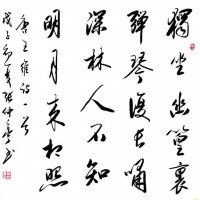 獨坐幽篁裏
彈琴復长嘯
深林人不知
明月来相照
唐王維詩一首
戊子夏張仲亭书